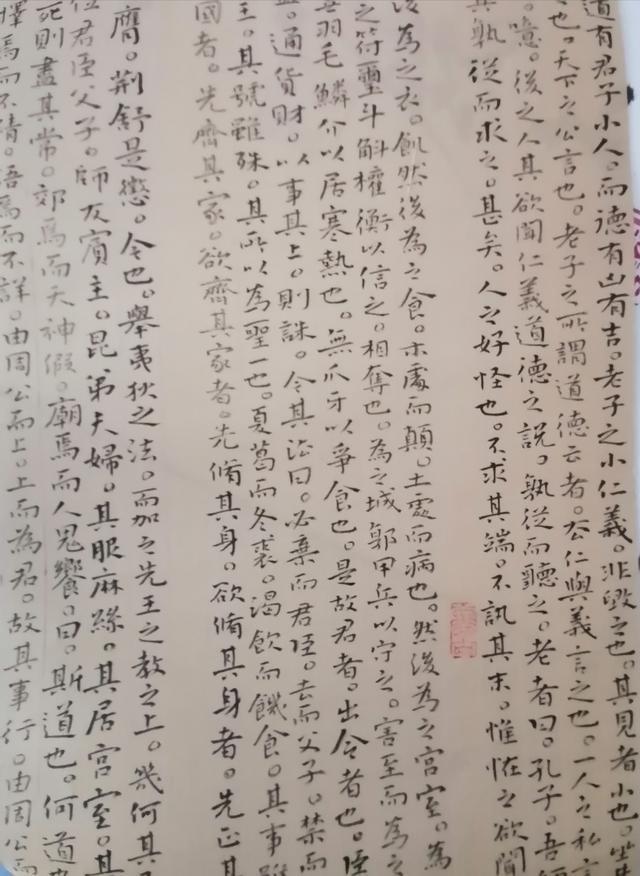 道有君子小人。而德有凶有吉。老子之小仁義。非毀之也。其見者小也。坐
也。天下之公言也。老子之所謂道德云者。去仁與義言之也。一人之私言
。噫。後之人其欲聞仁義道德之說。孰從而聽之。老者曰。孔子。吾師
其孰從而求之。甚矣。人之好怪也。不求其端。不訊其末。惟怪之欲聞
後為之衣。飢然後為之食。木處而顛。土處而病也。然後為之宮室。為
之符璽斗斛權衡以信之。相奪也。為之城郭甲兵以守之。害至而為之
無羽毛鱗介以居寒熱也。無爪牙以爭食也。是故君者。出令者也。臣
皿。通貨財。以事其上。則誅。今其法曰。必棄而君臣。去而父子。禁而
王。其號雖殊。其所以為聖一也。夏葛而冬裘。渴飲而饑食。其事雖
國者。先齊其家。欲齊其家者。先脩其身。欲脩其身者。先正其
膺。荊舒是懲。今也。舉夷狄之法。而加之先王之教之上。幾何其
位君臣父子。師友賓主。昆弟夫婦。其服麻絲。其居宮室。其
死則盡其常。郊焉而天神假。廟焉而人鬼饗。曰。斯道也。何道也
擇焉而不精。語焉而不詳。由周公而上。上而為君。故其事行。由周公而